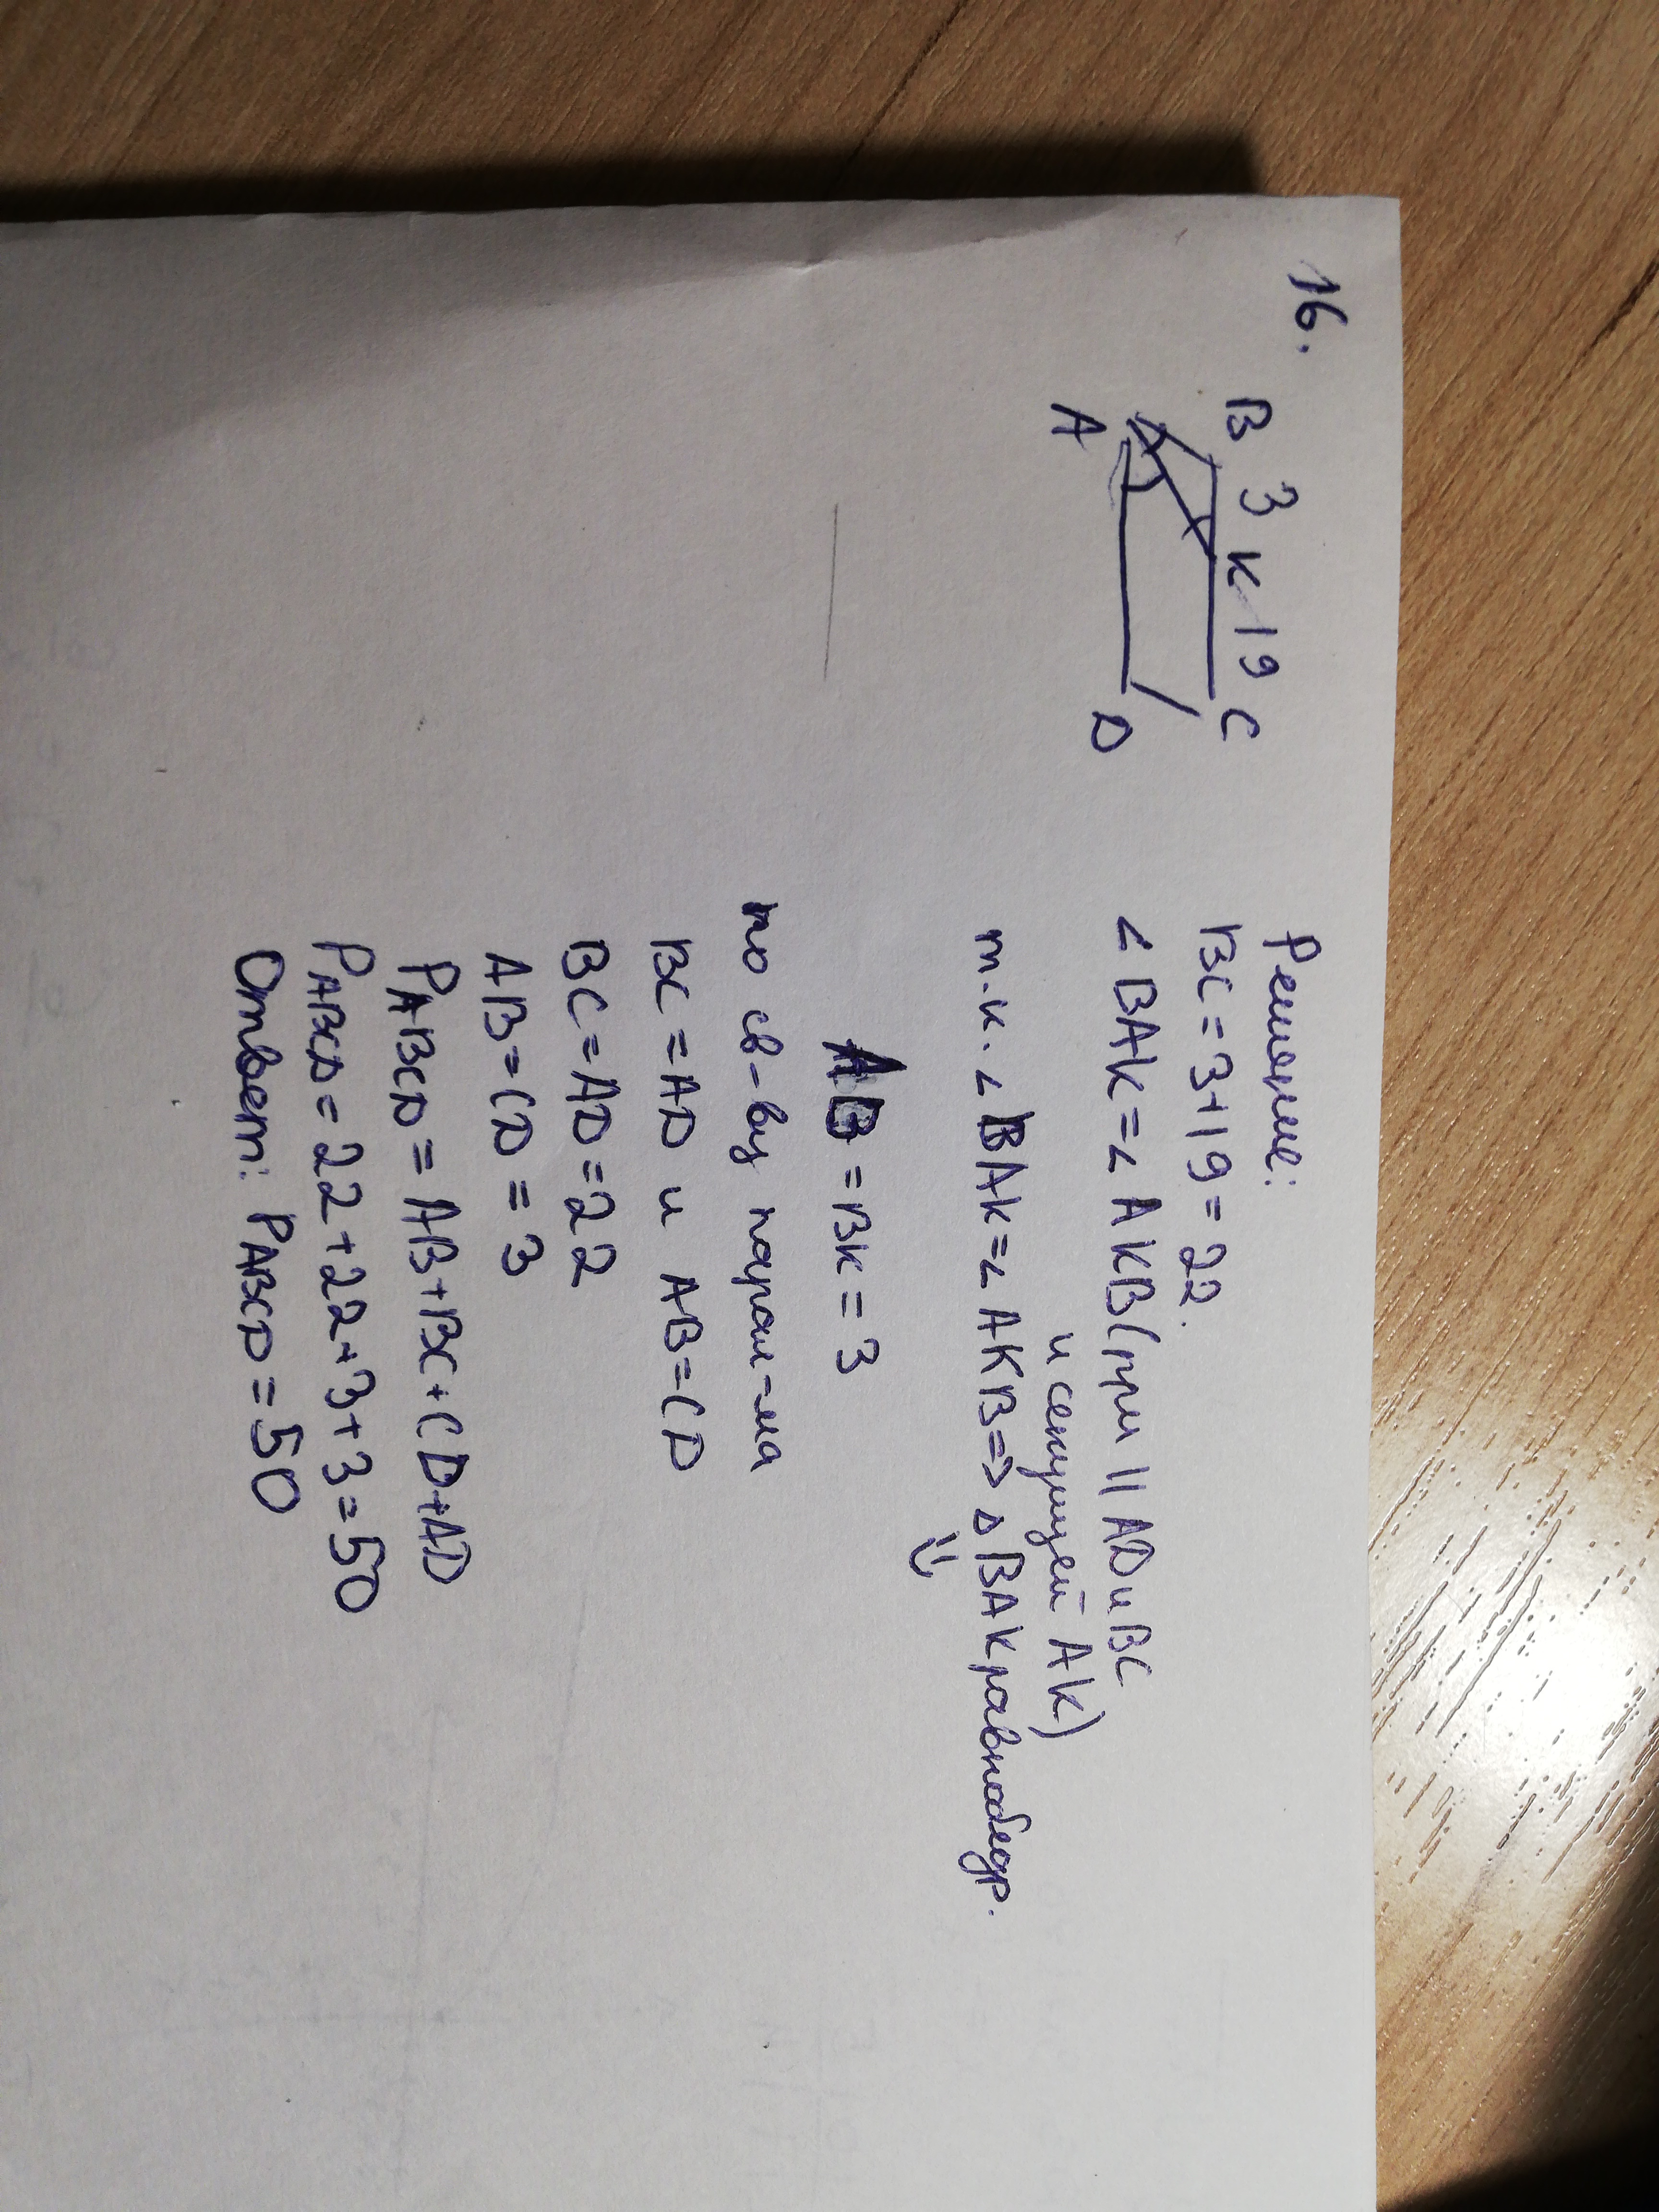 16.
B 3 K 19 C
A D
Решение:
BC = 3+19 = 22.
∠BAK = ∠AKB (при || AD и BC
и секущей AK)
т.к. ∠BAK = ∠AKB => △BAK равнобедр.
⇓
AB = BK = 3
по св-ву парал-ма
BC = AD и AB = CD
BC = AD = 22
AB = CD = 3
PABCD = AB+BC+CD+AD
PABCD = 22+22+3+3 = 50
Ответ: PABCD = 50